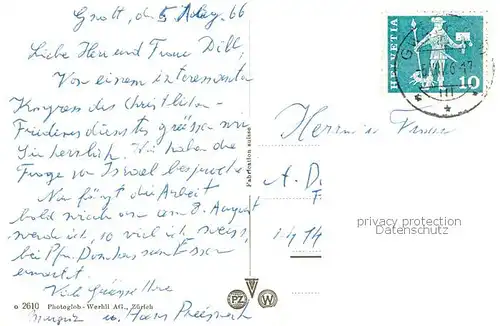 d. 5. Aug. 66
Liebe Herr und Frau Dill,
Von einem interessanten
Kongress des Christlichen
Friedensdienstes grüssen wir
Sie herzlich. Wir haben die
Frage von Israel besproche
Nun fängt die Arbeit
bald wieder an am 8. August
werde ich, so viel ich weiss,
bei Pfr. zum Essen
erwartet.
Viele Grüsse Ihre
u. Hans
o 2610 Photoglob-Wehrli AG., Zürich
Fabrication suisse
PZ W
HELVETIA
10
Herrn u. Frau
A. D
1414
privacy protection
Datenschutz